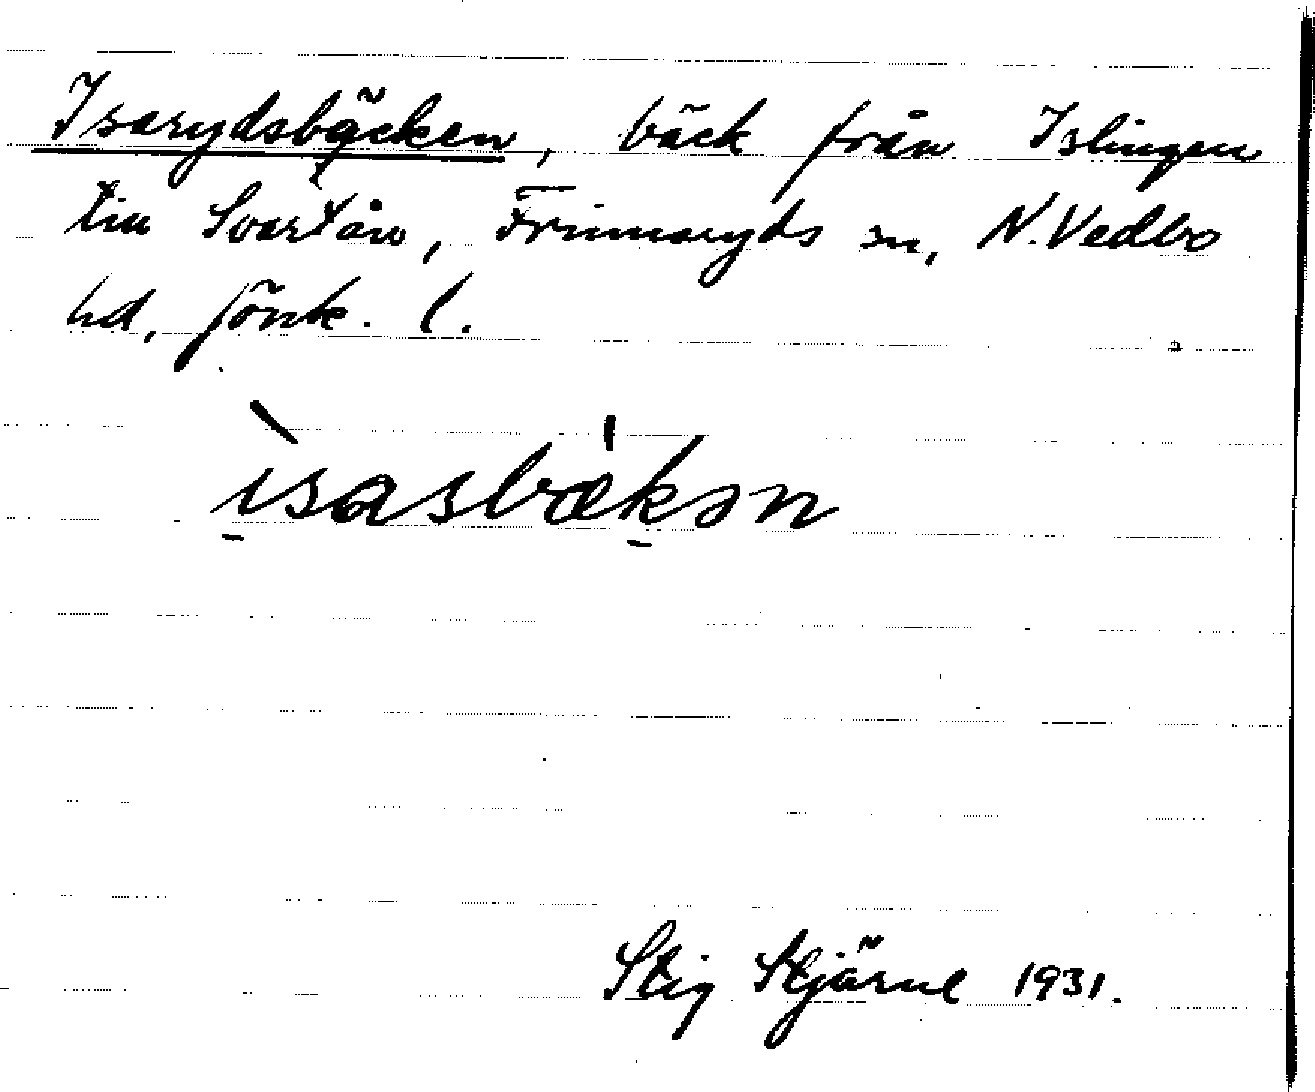 Isarydsbäcken, bäck från Islingen
till Svartån, Frinnaryds sn, N. Vedbo
hd, Jönk. l.
ìsasbækən
Stig Stjärne 1931.